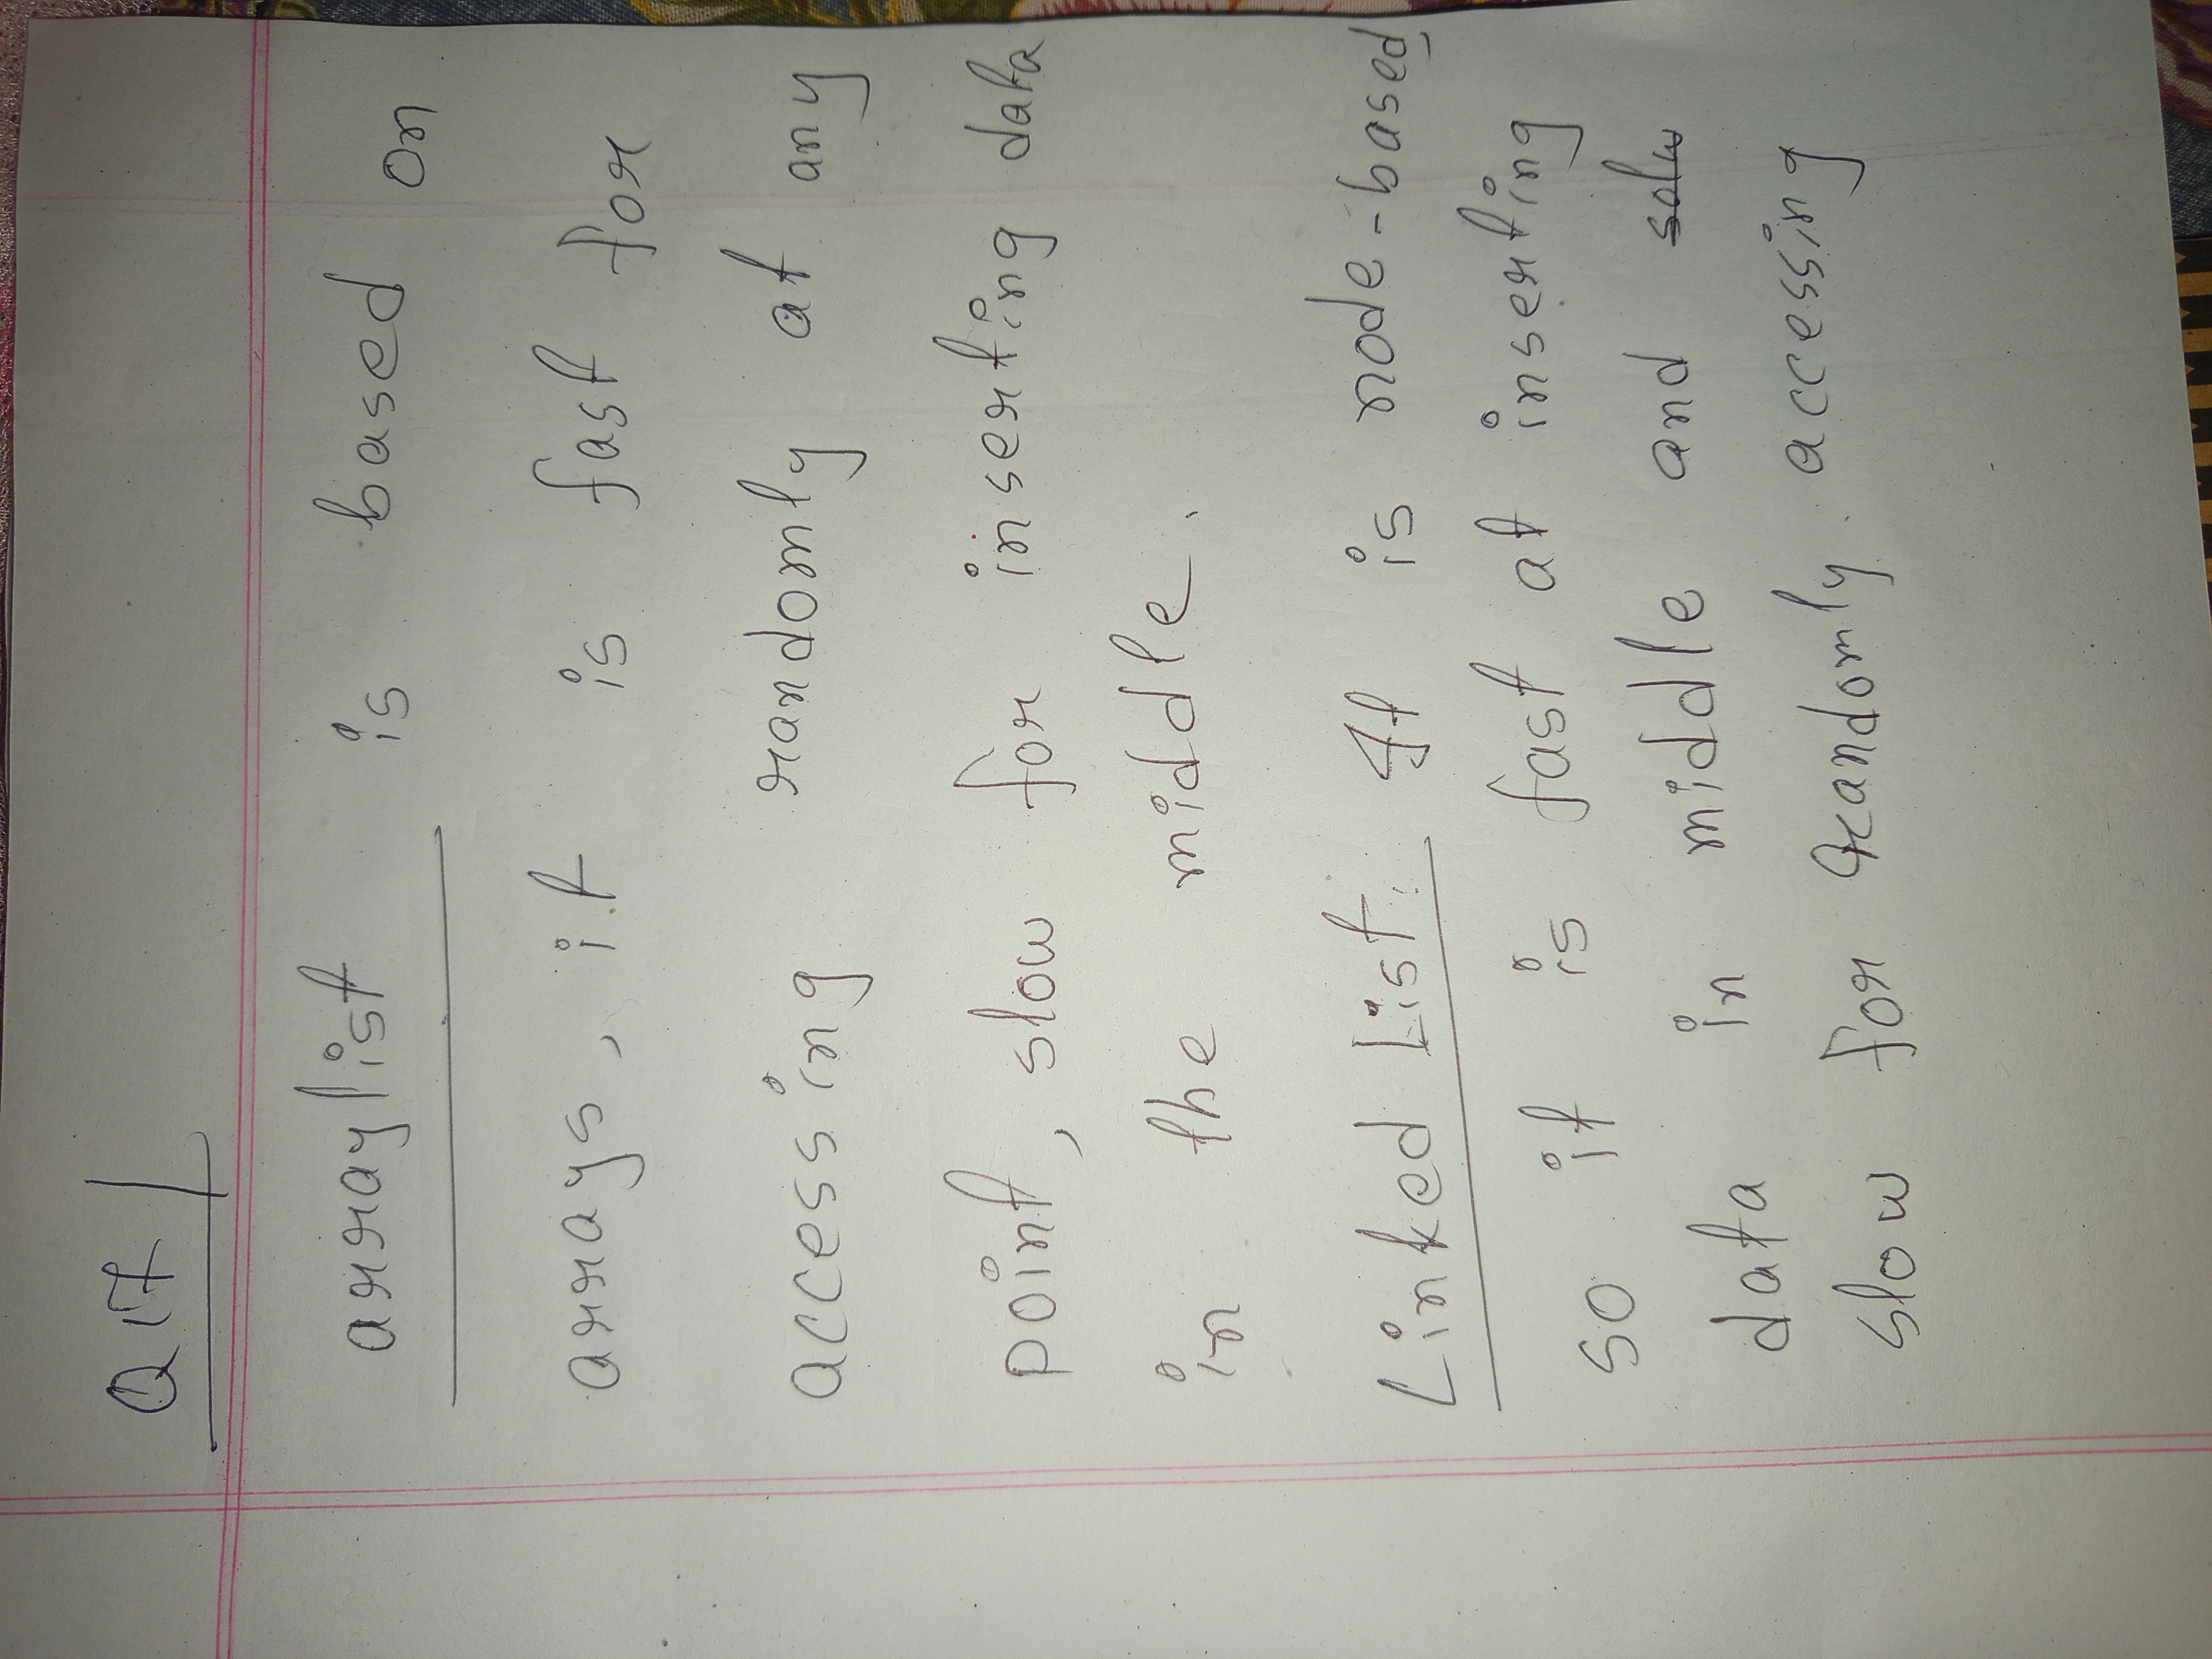 Q 17
arraylist is based on
arrays, it is fast for
accessing randomly at any
point, slow for inserting data
in the middle.
Linked List: It is node-based
so it is fast at inserting
data in middle and
slow for randomly. accessing